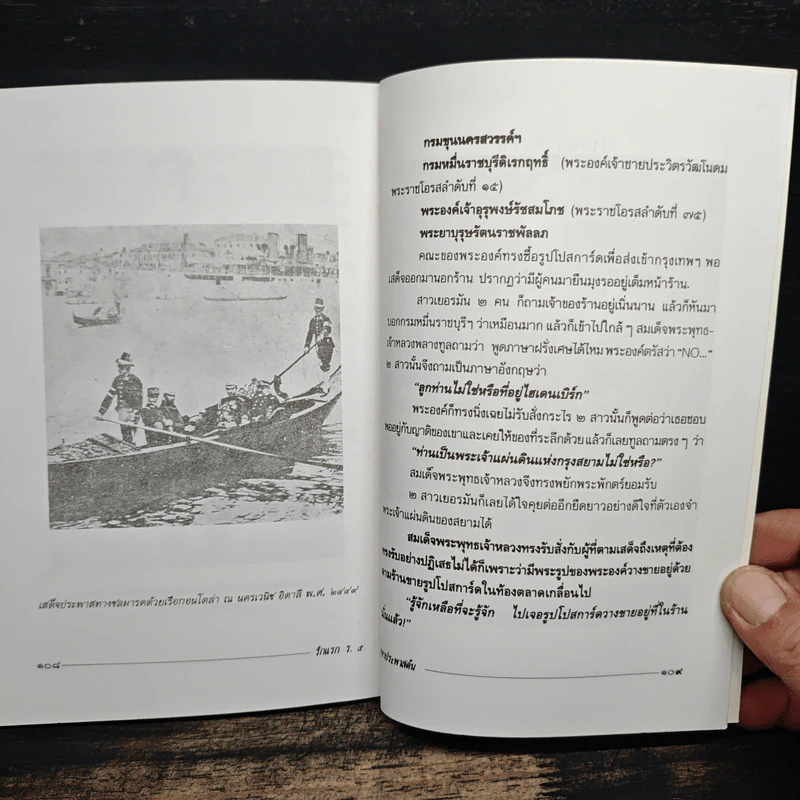 เสด็จประพาสทางชลมารคด้วยเรือกอนโดล่า ณ นครเวนิช อิตาลี พ.ศ. ๒๔๔๙
๑๐๘
รักแรก ร. ๕
กรมขุนนครสวรรค์ฯ
กรมหมื่นราชบุรีดิเรกฤทธิ์ (พระองค์เจ้าชายประวิตรวัฒโนดม
พระราชโอรสลำดับที่ ๑๕)
พระองค์เจ้าอุรุพงษ์รัชสมโภช (พระราชโอรสลำดับที่ ๗๕)
พระยาบุรุษรัตนราชพัลลภ
คณะของพระองค์ทรงซื้อรูปโปสการ์ดเพื่อส่งเข้ากรุงเทพฯ พอ
เสด็จออกมานอกร้าน ปรากฏว่ามีผู้คนมายืนมุงรออยู่เต็มหน้าร้าน.
สาวเยอรมัน ๒ คน ก็ถามเจ้าของร้านอยู่เนิ่นนาน แล้วก็หันมา
บอกกรมหมื่นราชบุรีฯ ว่าเหมือนมาก แล้วก็เข้าไปใกล้ ๆ สมเด็จพระพุทธ-
เจ้าหลวงพลางทูลถามว่า พูดภาษาฝรั่งเศษได้ไหม พระองค์ตรัสว่า "NO..."
๒ สาวนั้นจึงถามเป็นภาษาอังกฤษว่า
"ลูกท่านไม่ใช่หรือที่อยู่ไฮเดนเบิร์ก"
พระองค์ก็ทรงนิ่งเฉยไม่รับสั่งกระไร ๒ สาวนั้นก็พูดต่อว่าเธอชอบ
พออยู่กับญาติของเขาและเคยให้ของที่ระลึกด้วย แล้วก็เลยทูลถามตรง ๆ ว่า
"ท่านเป็นพระเจ้าแผ่นดินแห่งกรุงสยามไม่ใช่หรือ?"
สมเด็จพระพุทธเจ้าหลวงจึงทรงพยักพระพักตร์ยอมรับ
๒ สาวเยอรมันก็เลยได้ใจคุยต่ออีกยืดยาวอย่างดีใจที่ตัวเองจำ
พระเจ้าแผ่นดินของสยามได้
สมเด็จพระพุทธเจ้าหลวงทรงรับสั่งกับผู้ที่ตามเสด็จถึงเหตุที่ต้อง
ทรงรับอย่างปฏิเสธไม่ได้ก็เพราะว่ามีพระรูปของพระองค์วางขายอยู่ด้วย
ตามร้านขายรูปโปสการ์ดในท้องตลาดเกลื่อนไป
"รู้จักเหลือที่จะรู้จัก ไปเจอรูปโปสการ์ดวางขายอยู่ที่ในร้าน
นั่นแล้ว!"
ประพาสต้น
๑๐๙